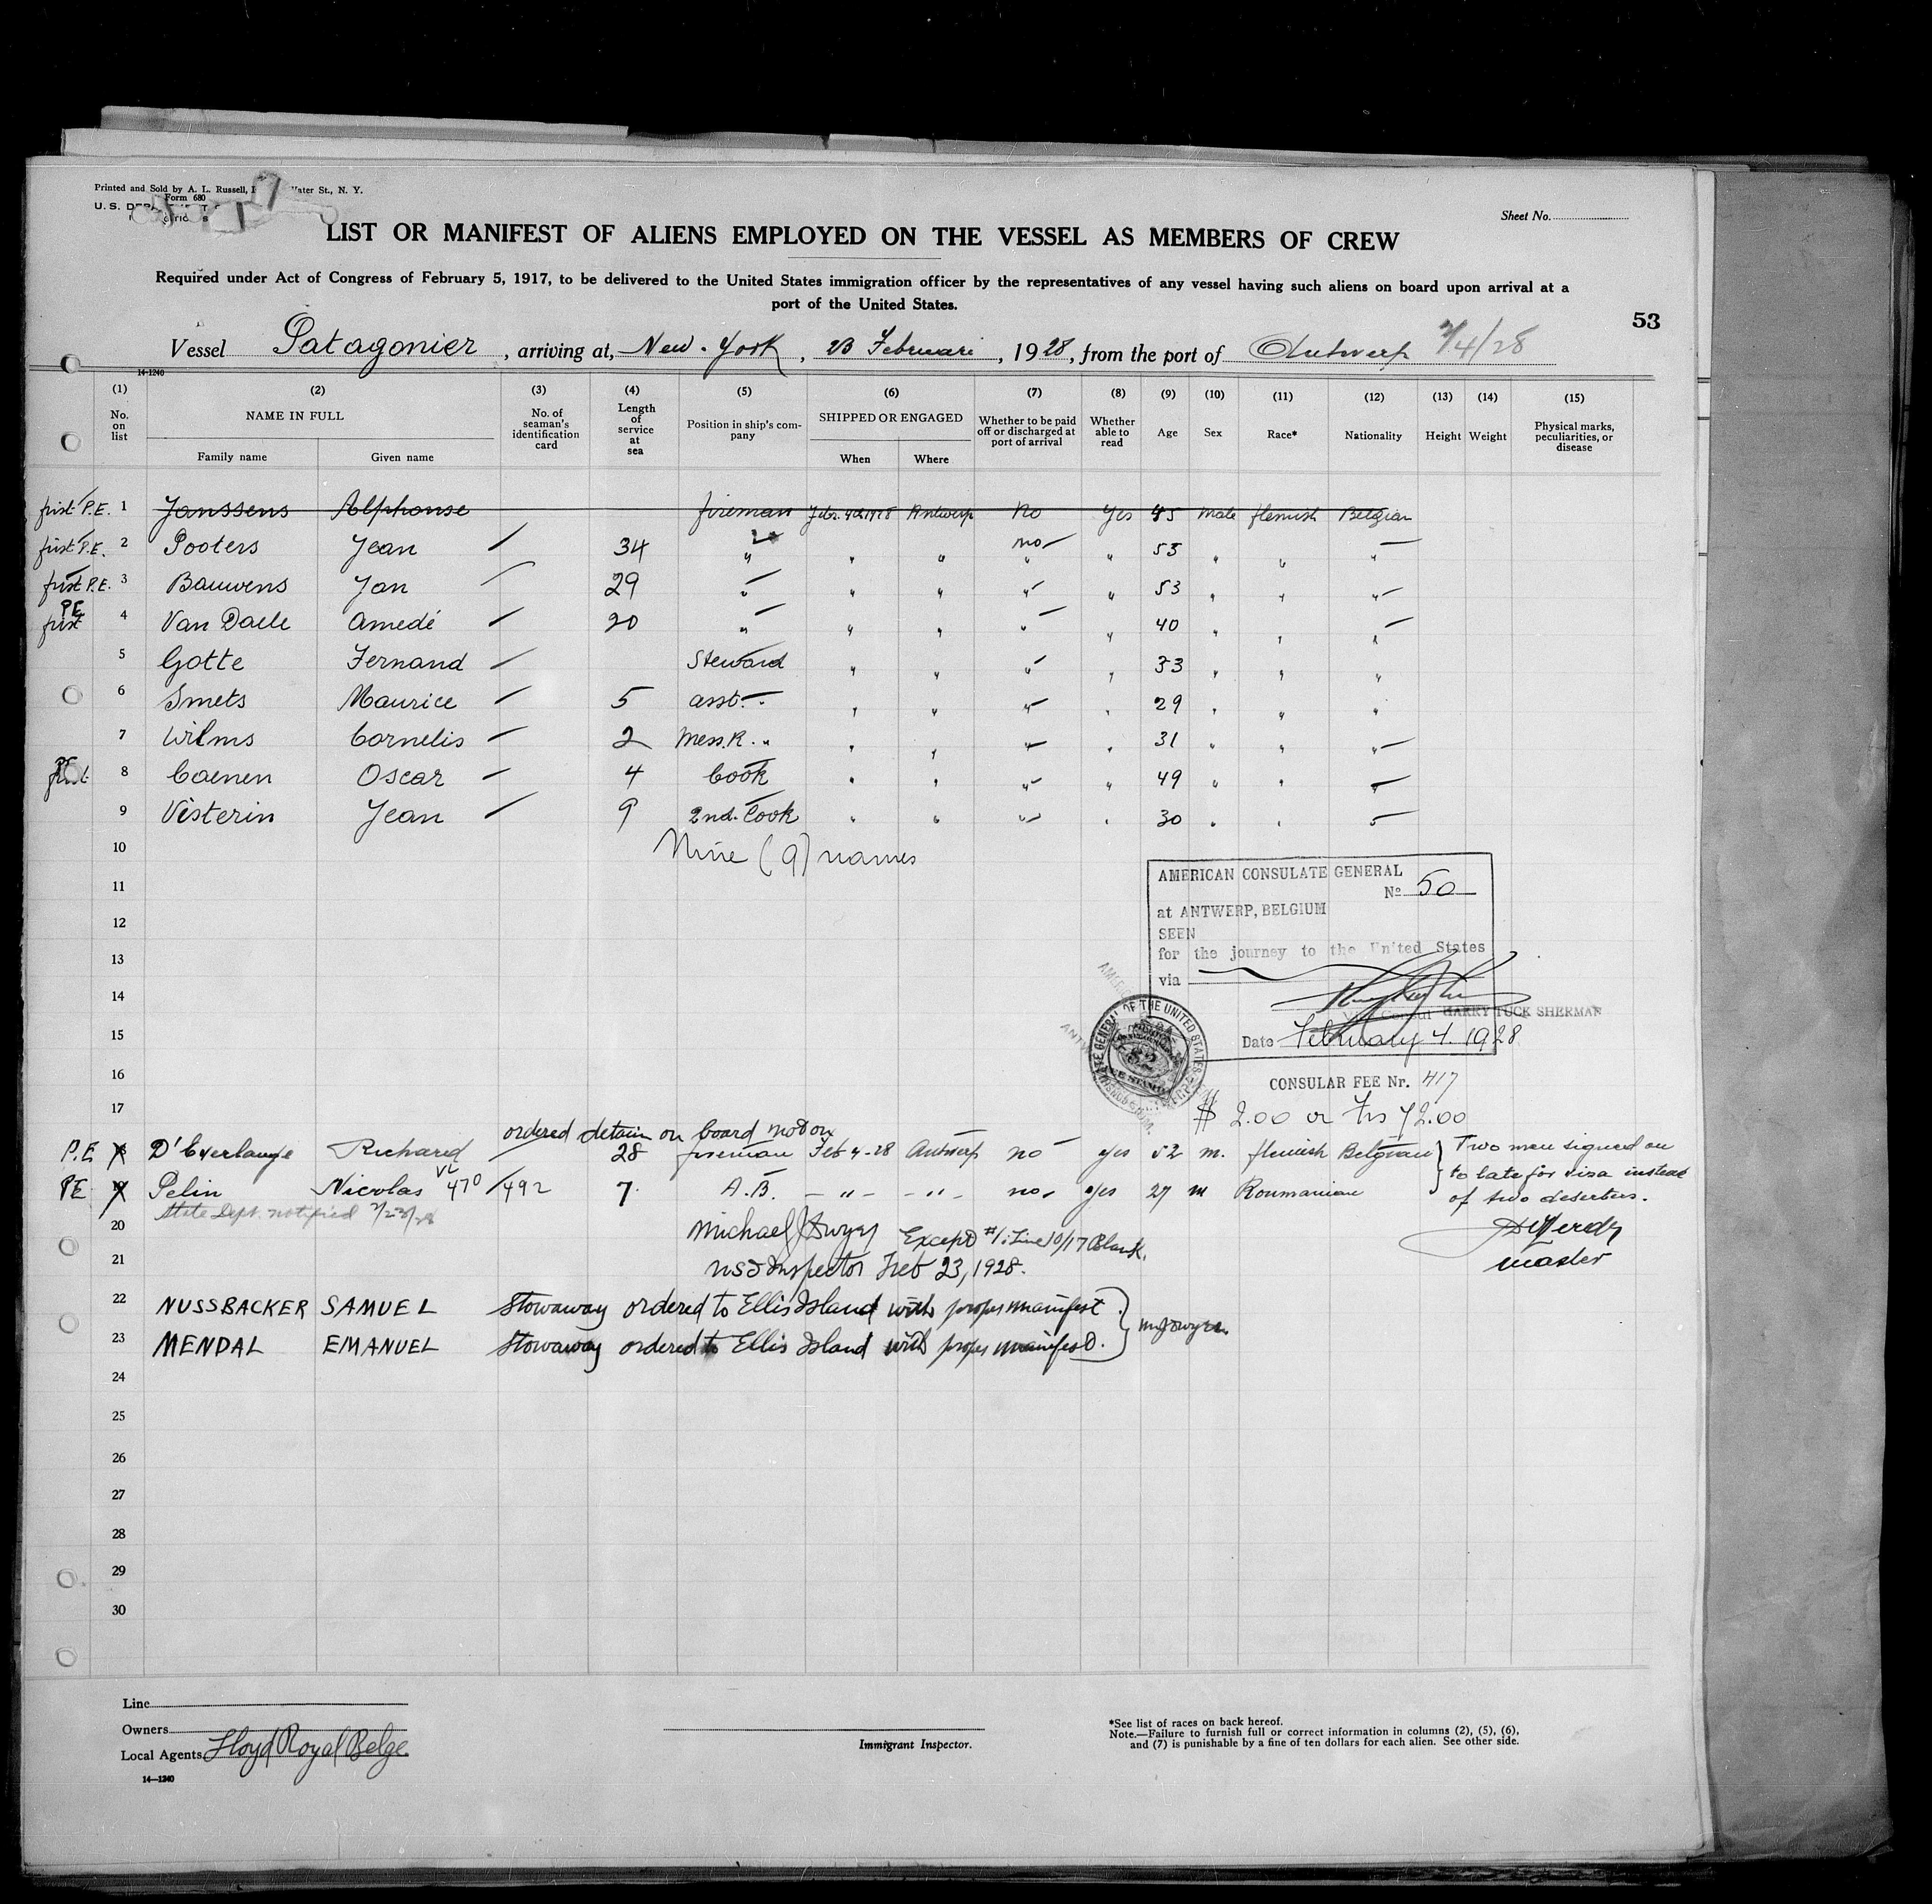 Printed and Sold by A. L. Russell, Water St., N. Y.
Form 680
U. S.
Sheet No.
LIST OR MANIFEST OF ALIENS EMPLOYED ON THE VESSEL AS MEMBERS OF CREW
Required under Act of Congress of February 5, 1917, to be delivered to the United States immigration officer by the representatives of any vessel having such aliens on board upon arrival at a
port of the United States.
53
Vessel Patagonier, arriving at, New-York, 23 Februari, 1928, from the port of Antwerp 2/4/28
14-1240
(1) (2) (3) (4) (5) (6) (7) (8) (9) (10) (11) (12) (13) (14) (15)
No. on list NAME IN FULL No. of seaman's identification card Length of service at sea Position in ship's company SHIPPED OR ENGAGED Whether to be paid off or discharged at port of arrival Whether able to read Age Sex Race* Nationality Height Weight Physical marks, peculiarities, or disease
Family name Given name When Where
first P.E. 1 Janssens Alphonse fireman Feb. 4th 1928 Antwerp No Yes 45 Male flemish Belgian
first P.E. 2 Pooters Jean 34 " " " no " " 53 " " "
first P.E. 3 Bauwens Jan 29 " " " " " 53 " " "
P.E. first 4 Van Daele Amedé 20 " " " " " 40 " " "
5 Gotte Fernand Steward " " " " 33 " " "
6 Smets Maurice 5 asst. " " " " " 29 " " "
7 Wilms Cornelis 2 Mess.R. " " " " " 31 " " "
PE first 8 Caenen Oscar 4 Cook " " " " 49 " " "
9 Visterin Jean 9 2nd. Cook " " " " 30 " " "
10 Nine (9) names
11
12
13
14
15
16
17
AMERICAN CONSULATE GENERAL
No 50
at ANTWERP, BELGIUM
SEEN
for the journey to the United States
via
Vice Consul HARRY TUCK SHERMAN
Date February 4. 1928
CONSULAR FEE Nr. 417
$ 2.00 or Frs 72.00
ordered detain on board
P.E. D'Everlange Richard 28 fireman Feb 4-28 Antwerp no yes 52 m. flemish Belgian
PE Pelin Nicolas 470 492 7 A.B. - " - - " - no. yes 27 m Roumanian
Two men signed on
to late for visa instead
of two deserters.
State Dept. notified 2/23/28
20 Michael J Dwyer Except #1: Line 10/17 Blank.
21 Inspector Feb 23, 1928.
master
22 NUSSBACKER SAMUEL Stowaway ordered to Ellis Island with proper manifest.
23 MENDAL EMANUEL Stowaway ordered to Ellis Island with proper manifest.
24
25
26
27
28
29
30
Line
Owners
Local Agents Lloyd Royal Belge
14—1240
Immigrant Inspector.
*See list of races on back hereof.
Note.—Failure to furnish full or correct information in columns (2), (5), (6),
and (7) is punishable by a fine of ten dollars for each alien. See other side.